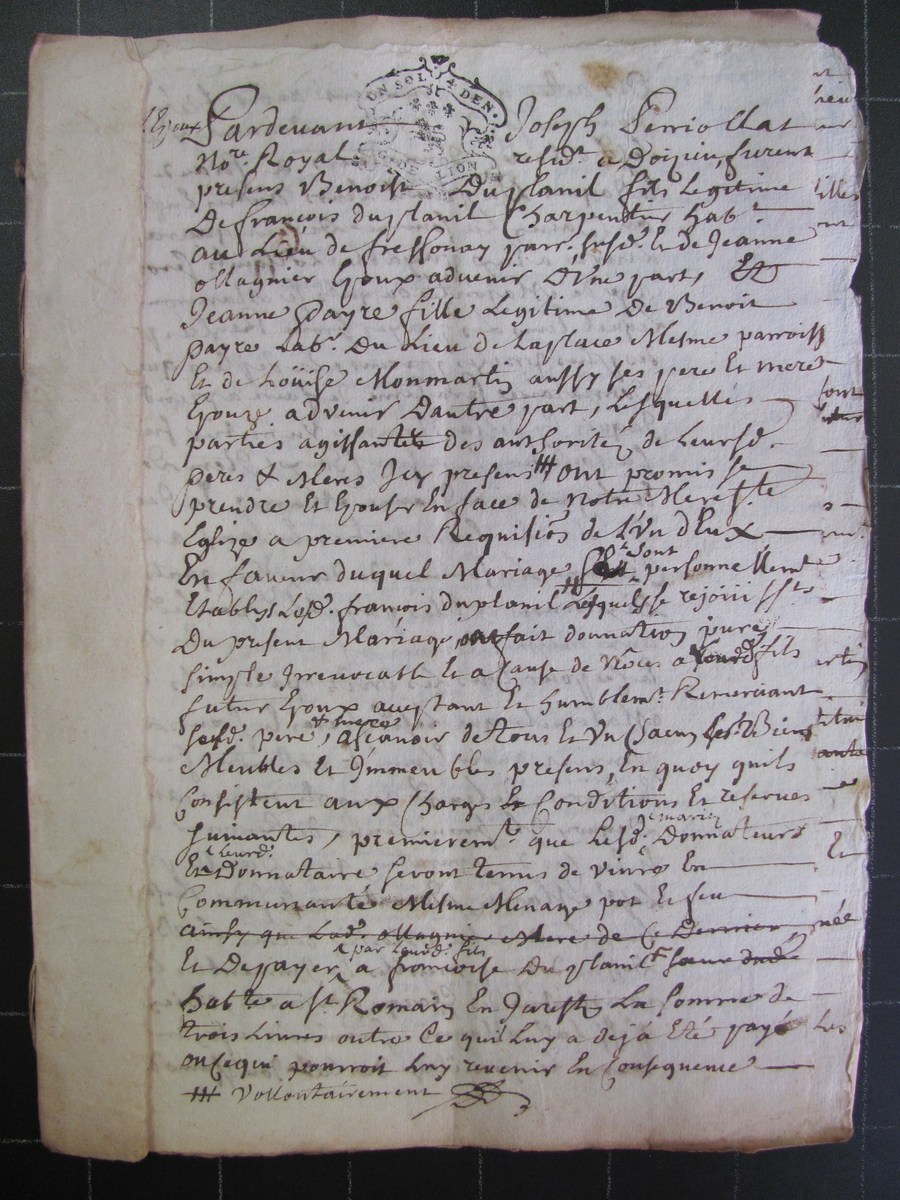 UN SOL 4 DEN.
LION
Pardevant Joseph Perriollat
No.re Royal resid.t a Doizieu, furent
presens Benoist Duplanil fils Legitime
De françois duplanil Charpentier hab.t
au Lieu de fressonay parr. susd. Et de Jeanne
ollagnier Epoux advenir D'Une part, Et
Jeanne Payre fille Legitime De Benoit
payre Lab.r Du Lieu de Laplace Mesme parroisse
Et de Loüise Monmartin aussy ses pere Et mere
Epouze advenir Dautre part, Lesquelles
parties agissantes des authorités de Leursd.
peres & Meres Icy presens ont promis se
prendre Et Epouser En face de Notre Mere Ste
Eglize a premiere Requision de L'Un d'Eux
En faveur duquel Mariage sont personnellem.t
Etablys Led. françois duplanil Lesquels se rejouiss.ts
Du present Mariage ont fait donnation pure
simple Irrevocable Et a Cause de Nôces a fils
futur Epoux aceptant Et humblem.t Remerciant
sesd. pere & mere, ascavoir de tous Et Un Chacun ses Biens
Meubles Et Immeubles presens, En quoy quils
Consistent aux Charges Conditions Et reserves
suivantes, premierem.t que Lesd. Donnateurs
Et Leurd. Donnataire seront tenus de vivre En
Communauté Mesme Menage pot Et feu
ainsy que Lad. ollagnier Mere de Ce Dernier
Et De payer par Leurd. fils a francoise Duplanil
hab.te a S.t Romain En Jarest La Somme de
trois Livres outre Ce qui Luy a dejà Eté payé
ou Ce qui pourroit Luy revenir En Consequence
Vollontairement